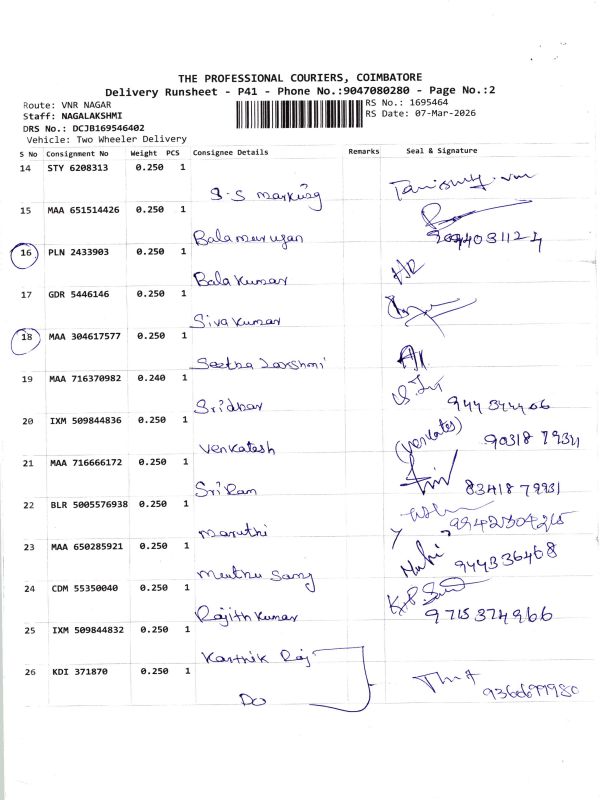 THE PROFESSIONAL COURIERS, COIMBATORE
Delivery Runsheet - P41 - Phone No.:9047080280 - Page No.:2
Route: VNR NAGAR
Staff: NAGALAKSHMI
DRS No.: DCJB169546402
Vehicle: Two Wheeler Delivery
RS No.: 1695464
RS Date: 07-Mar-2026
S No Consignment No Weight PCS Consignee Details Remarks Seal & Signature
14 STY 6208313 0.250 1
S.S
15 MAA 651514426 0.250 1
Balamurugan
16 PLN 2433903 0.250 1
Bala Kumar
17 GDR 5446146 0.250 1
Siva Kumar
18 MAA 304617577 0.250 1
Seetha Lakshmi
19 MAA 716370982 0.240 1
Sridhar
20 IXM 509844836 0.250 1
Venkatesh (Venkates)
21 MAA 716666172 0.250 1
Sri Ram 83418 79931
22 BLR 5005576938 0.250 1
Maruthi
23 MAA 650285921 0.250 1
Muthu Samy
24 CDM 55350040 0.250 1
Rajith Kumar 9715374966
25 IXM 509844832 0.250 1
Karthik Raj
26 KDI 371870 0.250 1
Do 9360699980